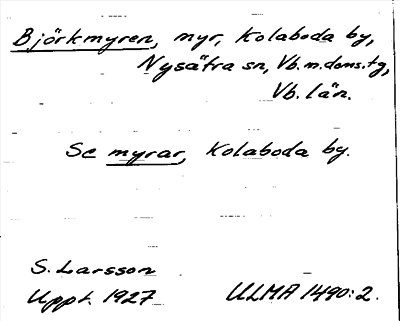 Björkmyren, myr, Kolaboda by,
Nysätra sn, Vb.m.doms.tg,
Vb. län.
Se myrar, Kolaboda by.
S. Larsson
Uppt. 1927 ULMA 1490:2.